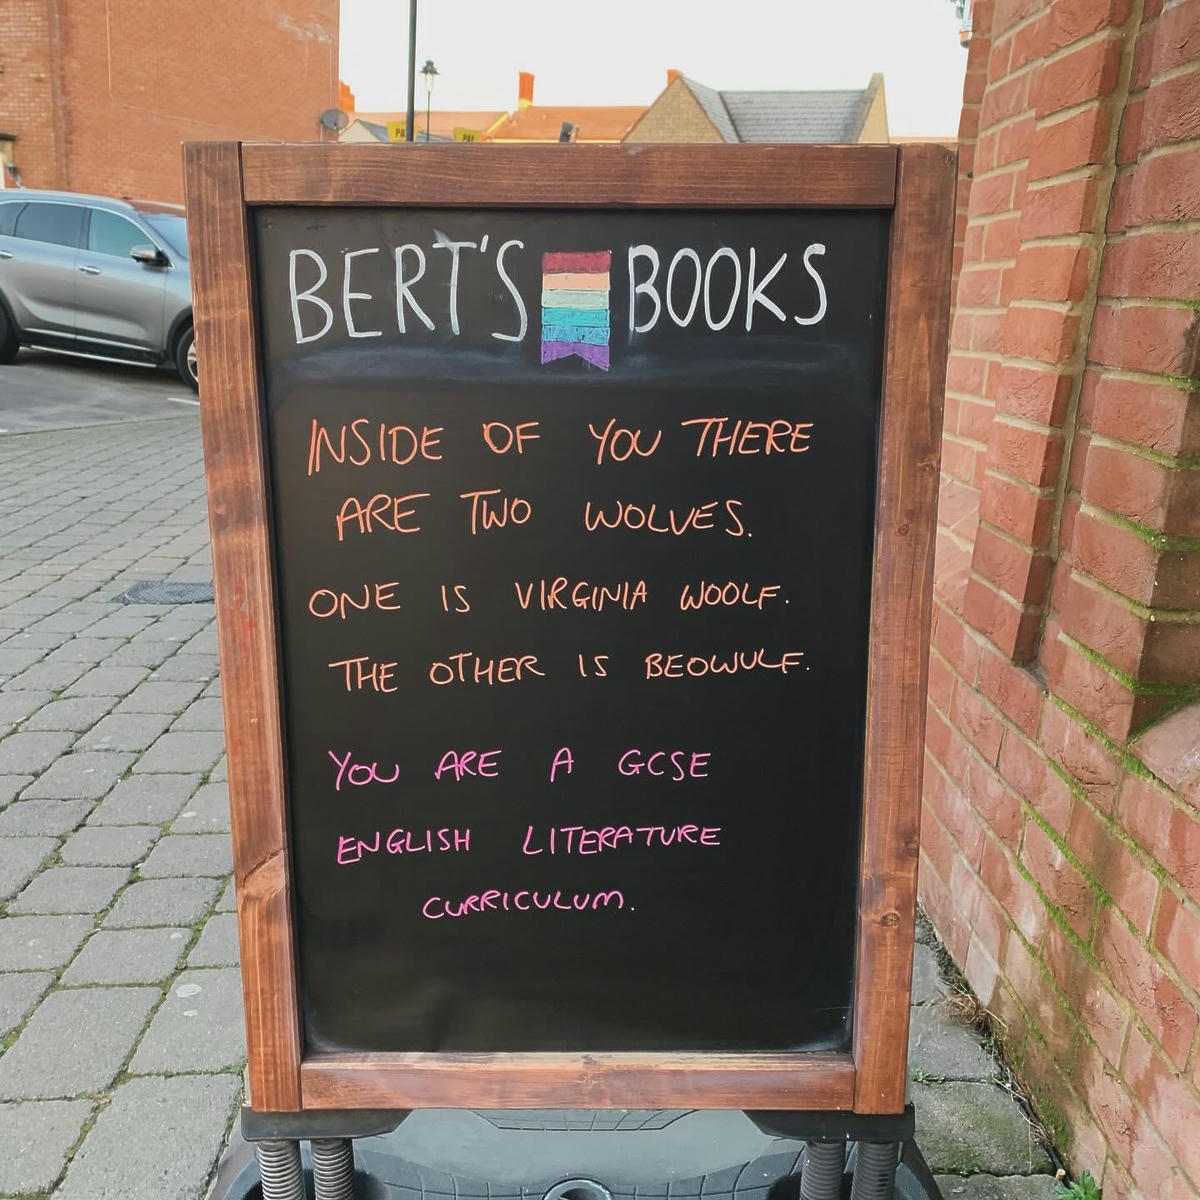 BERT'S BOOKS
INSIDE OF YOU THERE
ARE TWO WOLVES.
ONE IS VIRGINIA WOOLF.
THE OTHER IS BEOWULF.
YOU ARE A GCSE
ENGLISH LITERATURE
CURRICULUM.